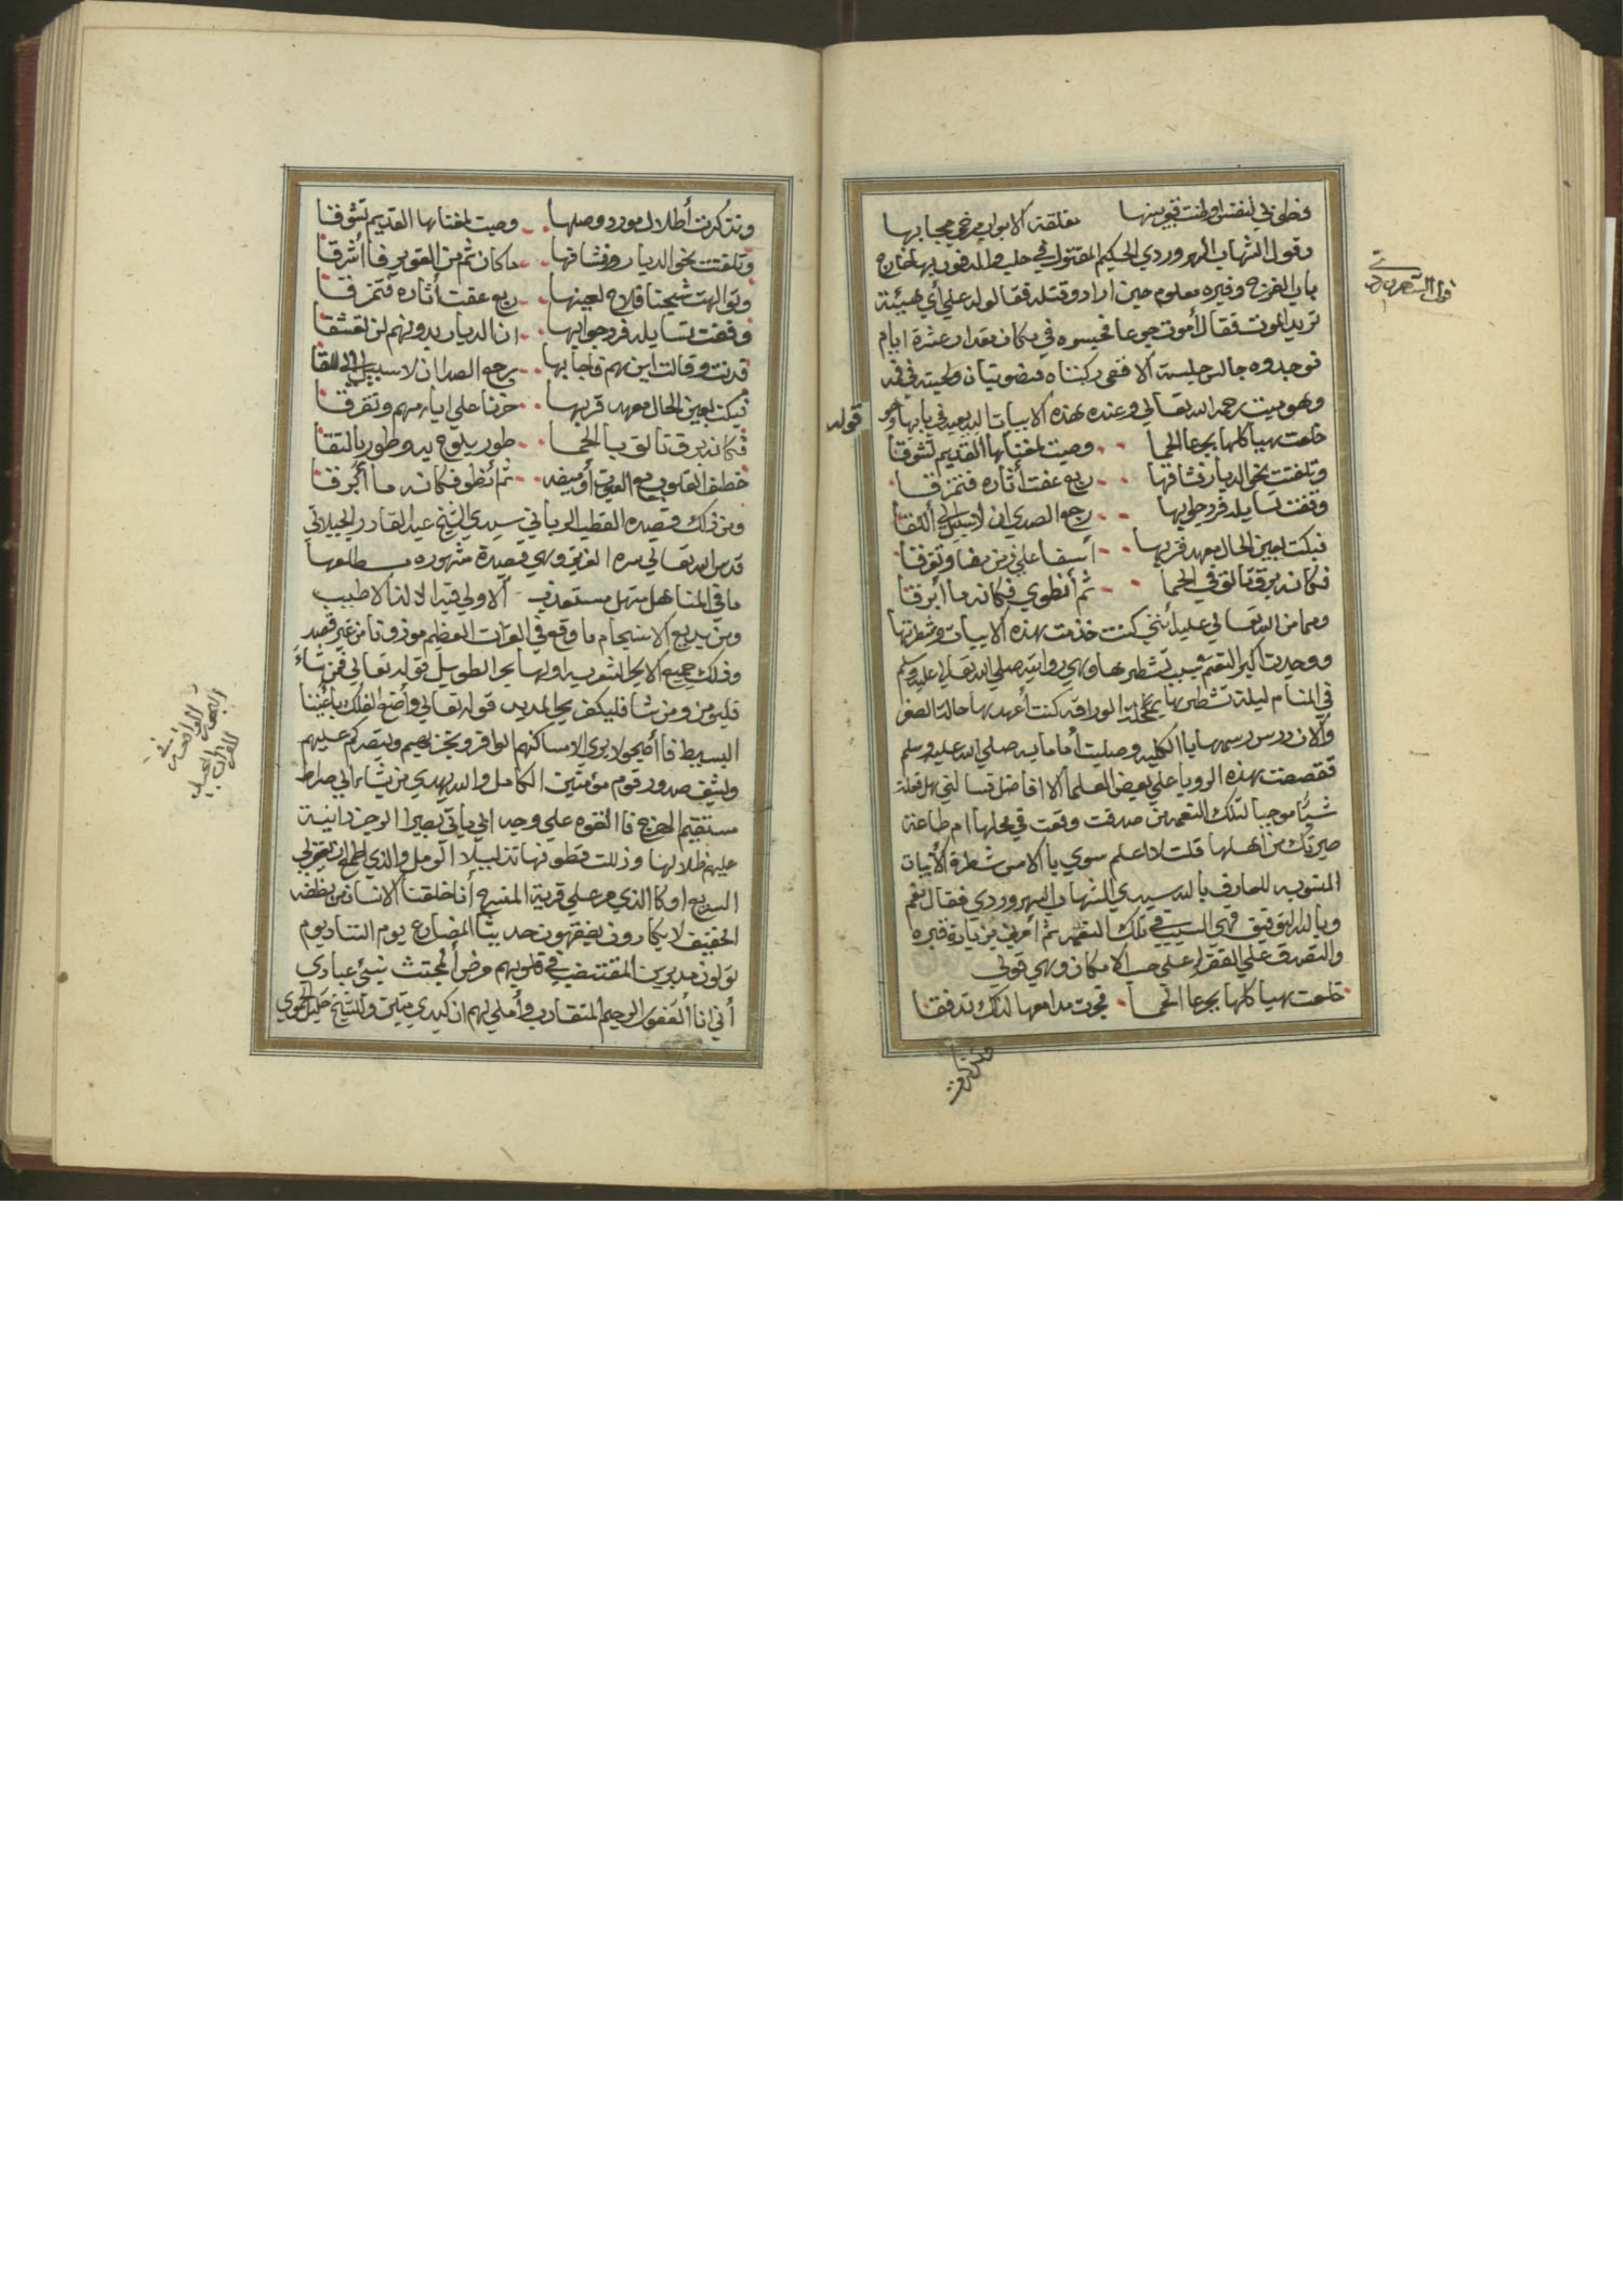 وقول الشهاب السهروردي الحكيم المقتول في حلب والمدفون بها خارج
باب الفرج وقبره معلوم حين ارادو قتله فقالوا له علي أي هيئة
تريد الموت فقال أموت جوعا فحبسوه في مكان مقدار عشرة ايام
فوجدوه جالس جلسة الاقفى ركبتاه منصوبتان ولحيته في فمه
وهو ميت رحمه الله تعالي وعنده هذه الابيات البديعة في بابها وهو
قوله
خلعت هياكلها بجرعا الحما وصبت لمغناها القديم تشوقا
وتلفتت نحو الديار فشاقها ربع عفت أثاره فتمزقا
وقفت تسايله فرد جوابها رجع الصدي ان لا سبيل الي اللقا
فبكت بعين الحال معهد قربها أسفا علي زمن مضا وتفرقا
فكانه برق تالق في الحما ثم أنطوي فكانه ما أبرقا
ومما من الله تعالي عليه أنني كنت خدمت بهذه الابيات وشطرتها
ووجدت اكبر النعم بسبب تشطيرها وهي روايته صلي الله تعالي عليه وسلم
في المنام ليلة تشطيرها بمحلة الوراقه كنت أعهد بها حالة الصغر
والان درس رسمها بالكليه وصليت أمامابه صلي الله عليه وسلم
فقصصت هذه الرويا علي بعض العلما الافاضل فسالني هل فعلت
شيئا موجبا لتلك النعمه من صدقت وقعت في محلها ام طاعة
صيرتك من اهلها قلت لا اعلم سوي بالامس شطرة الأبيات
المنسوبه للعارف بالله سيدي الشهاب السهروردي فقال نعم
وبالله التوفيق فهي السبب في تلك النعم ثم أمرني بزيادة قبره
والتصدق علي الفقرا علي حسب الامكان وهي قولي
خلعت هياكلها بجرعا الحما فجرت مدامعها لذاك تدفقا
وتذكرت
وتذكرت أطلال مورد وصلها وصبت لمغناها القديم تشوقا
وتلفتت نحو الديار وشاقها ما كان ثم من الغوير فأشرقا
ربع عفت أثاره فتمزقا
وقفت تسايله فرد جوابها ان الديار بدونهم لن تعشقا
فدنت وقالت اين هم فاجابها رجع الصدا ان لا سبيل الي اللقا
فبكت بعين الحال معهد قربها حزنا علي ايامهم وتفرقا
فكانه برق تالق بالحما طور يلوح به وطور بالنقا
ثم أنطوي فكانه ما أبرقا
ومن ذلك قصيدة القطب الرباني سيدي الشيخ عبد القادر الجيلاني
قدس الله تعالي سره العزيز وهي قصيدة مشهوره مطلعها
ما في المناهل منهل مستعذب الا ولي فيه الالذ الاطيب
ومن بديع الانسجام ما وقع في القرآن العظيم موزونا من غير قصد
وذلك جميع الابحر الشعريه اولها بحر الطويل قوله تعالي فمن شاء
فليومن ومن شا فليكفر بحر المديد قوله تعالي وأصنع الفلك بأعيننا
البسيط فأصبحوا لا يري الا مساكنهم الوافر ويخزهم وينصركم عليهم
ويشف صدور قوم مؤمنين الكامل والله يهدي من يشاء الي صراط
مستقيم الهزج فالقوه علي وجه ابي يات بصيرا الرجز دانية
عليهم ظلالها وذللت قطوفها تذليلا الرمل والذي اطمع ان يغفر لي
السريع او كالذي مر علي قرية المنسرح أنا خلقنا الانسان من نطفه
الخفيف لا يكادون يفقهون حديثا المضارع يوم التناد يوم
تولون مدبرين المقتضب في قلوبهم مرض المجتث نبئ عبادي
أني انا الغفور الرحيم المتقارب وأملي لهم ان كيدي متين وللشيخ خليل الحموي